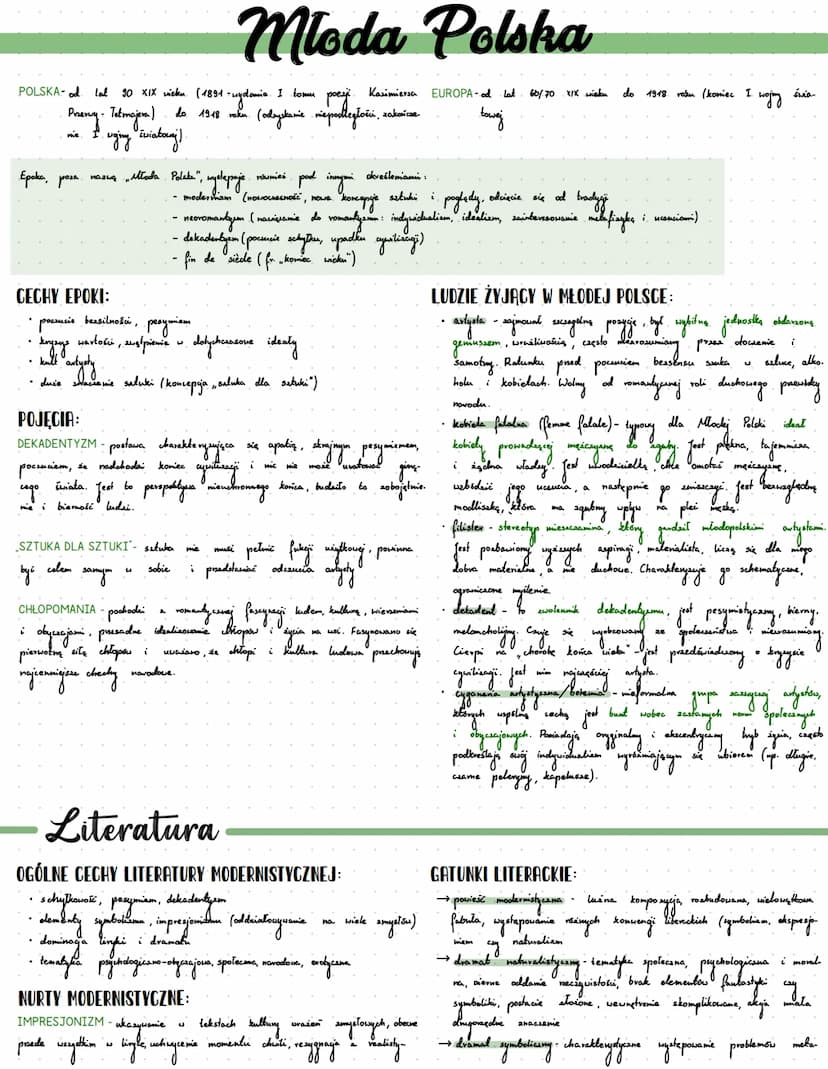 Młoda Polska
POLSKA - od lat 90 XIX wieku (1891 - wydanie I tomu poezji Kazimierza
Przerwy - Tetmajera) do 1918 roku (odzyskanie niepodległości, zakończe-
nie I wojny światowej)
EUROPA - od lat 60/70 XIX wieku do 1918 roku (koniec I wojny świa-
towej
Epoka, poza nazwą „Młoda Polska", występuje również pod innymi określeniami:
- modernizm (nowoczesność, nowe koncepcje sztuki i poglądy, odcięcie się od tradycji
- neoromantyzm (nawiązanie do romantyzmu: indywidualizm, idealizm, zainteresowanie metafizyką i uczuciami)
- dekadentyzm (poczucie schyłku, upadku cywilizacji)
- fin de siècle (fr. „koniec wieku")
CECHY EPOKI:
· poczucie bezsilności, pesymizm
· kryzys wartości, zwątpienie w dotychczasowe ideały
· kult artysty
· duże znaczenie sztuki (koncepcja „sztuka dla sztuki")
POJĘCIA:
DEKADENTYZM - postawa charakteryzująca się apatią, skrajnym pesymizmem,
poczuciem, że nadchodzi koniec cywilizacji i nic nie może uratować giną-
cego świata. Jest to perspektywa nieuchronnego końca, budziło to zobojętnie-
nie i bierność ludzi.
„SZTUKA DLA SZTUKI" - sztuka nie musi pełnić fukcji użytkowej, powinna
być celem samym w sobie i przedstawiać odczucia artysty
CHŁOPOMANIA - pochodzi z romantycznej fascynacji ludem, kulturą, wierzeniami
i obyczajami, przesadne idealizowanie chłopów i życia na wsi. Fascynowano się
pierwotną siłą chłopów i uważano, że chłopi i kultura ludowa przechowują
najcenniejsze chechy narodowe.
LUDZIE ŻYJĄCY W MŁODEJ POLSCE:
· artysta - zajmował szczególną pozycję, był wybitną jednostką obdarzoną
geniuszem, wrażliwością, często niezrozumiany przez otoczenie i
samotny. Ratunku przed poczuciem bezsensu szuka w sztuce, alko-
holu i kobietach. Wolny od romantycznej roli duchowego przewódcy
narodu.
· kobieta fatalna (femme fatale) - typowy dla Młodej Polski ideał
kobiety prowadzącej mężczyznę do zguby. Jest piękna, tajemnicza
i żądna władzy. Jest uwodzicielką, chce omotać mężczyznę,
wzbudzić jego uczucia, a następnie go zniszczyć. Jest bezwzględną
modliszką, która ma zgubny wpływ na płeć męską.
· filister - stereotyp mieszczanina, który gardził młodopolskimi artystami.
Jest pozbawiony wyższych aspiracji, materialista, liczą się dla niego
dobra materialne, a nie duchowe. Charakteryzuje go schematyczne,
ograniczone myślenie.
· dekadent - to zwolennik dekadentyzmu, jest pesymistyczny, bierny,
melancholijny. Czuje się wyobcowany ze społeczeństwa i niezrozumiany.
Cierpi na „chorobę końca wieku" - jest przeświadczony o kryzysie
cywilizacji. Jest nim najczęściej artysta.
· cyganeria artystyczna/bohema - nieformalna grupa zazwyczaj artystów,
których wspólną cechą jest bunt wobec zastanych norm społecznych
i obyczajowych. Posiadają oryginalny i ekscentryczny tryb życia, często
podkreślają swój indywidualizm wyróżniającym się ubiorem (np. długie,
czarne peleryny, kapelusze).
Literatura
OGÓLNE CECHY LITERATURY MODERNISTYCZNEJ:
· schyłkowość, pesymizm, dekadentyzm
· elementy symbolizmu, impresjonizmu (oddziaływanie na wiele zmysłów)
· dominacja liryki i dramatu
· tematyka psychologiczno-obyczajowa, społeczna, narodowa, erotyczna
NURTY MODERNISTYCZNE:
IMPRESJONIZM - ukazywanie w tekstach kultury wrażeń zmysłowych, obecne
przede wszystkim w liryce, uchwycenie momentu chwili, rezygnacja z realisty-
GATUNKI LITERACKIE:
→ powieść modernistyczna - luźna kompozycja, rozbudowana, wielowątkowa
fabuła, występowanie różnych konwencji literackich (symbolizm, ekspresjo-
nizm czy naturalizm
→ dramat naturalistyczny - tematyka społeczna, psychologiczna i moral-
na, wierne oddanie rzeczywistości, brak elementów fantastyki czy
symboliki, postacie złożone, wewnętrznie skomplikowane, akcja miała
drugorzędne znaczenie
→ dramat symboliczny - charakterystyczne występowanie problemów meta-